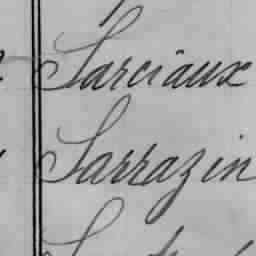 Sarciaux
Sarrazin